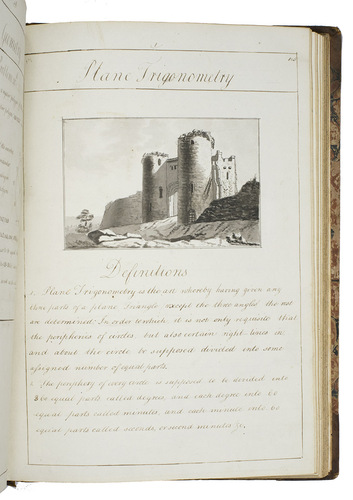 Plane Trigonometry
Definitions
1. Plane Trigonometry is the art whereby having given any
three parts of a plane triangle except the three angles the rest
are determined: In order to which, it is not only requisite that
the peripheries of circles, but also certain right-lines in
and about the circle be supposed devided into some
assigned number of equal parts.
2. The periphery of every circle is supposed to be devided into
360 equal parts called degrees, and each degree into 60
equal parts called minutes, and each minute into 60
equal parts called seconds, or second minutes &c.